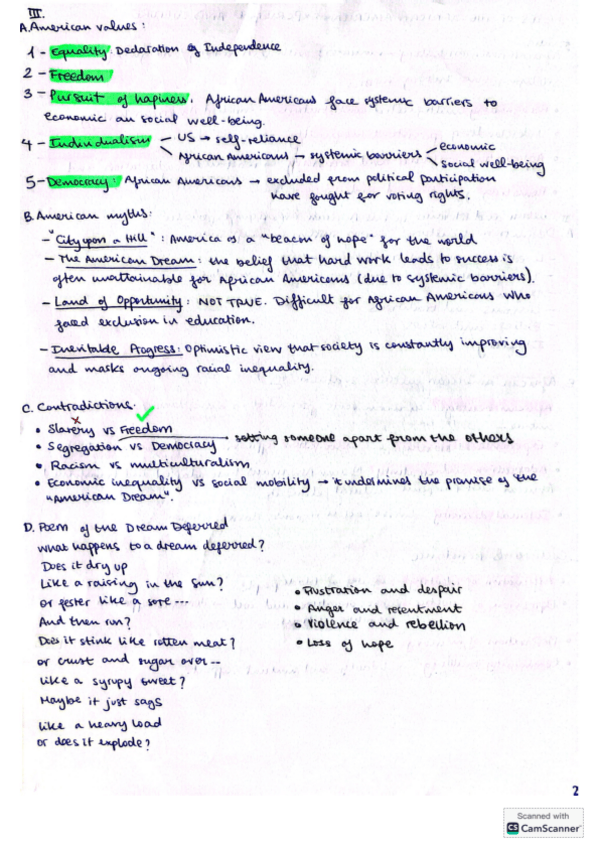 III.
A. American values:
1 - Equality: Declaration of Independence
2 - Freedom
3 - Pursuit of hapiness. African Americans face systemic barriers to
economic an social well-being.
4 - Individualism US → self-reliance
African Americans → systemic barriers economic
social well-being
5 - Democracy: African Americans → excluded from political participation
have fought for voting rights.
B. American myths:
- "City upon a Hill": America is a "beacon of hope" for the world
- The American Dream: the belief that hard work leads to success is
often unattainable for African Americans (due to systemic barriers).
- Land of Opportunity: NOT TRUE. Difficult for African Americans who
faced exclusion in education.
- Inevitable Progress: Optimistic view that society is constantly improving
and masks ongoing racial inequality.
C. Contradictions.
• Slavery vs Freedom
• Segregation vs Democracy → setting someone apart from the others
• Racism vs multiculturalism
• Economic inequality vs social mobility → it undermines the promise of the
"American Dream".
D. Poem of the Dream Deferred
What happens to a dream deferred?
Does it dry up
Like a raising in the sun?
• Frustration and despair
or fester like a sore --
• Anger and resentment
And then run?
• Violence and rebellion
Does it stink like rotten meat?
• Loss of hope
or crust and sugar over --
like a syrupy sweet?
Maybe it just sags
like a heavy load
or does it explode?
2
Scanned with
CS CamScanner